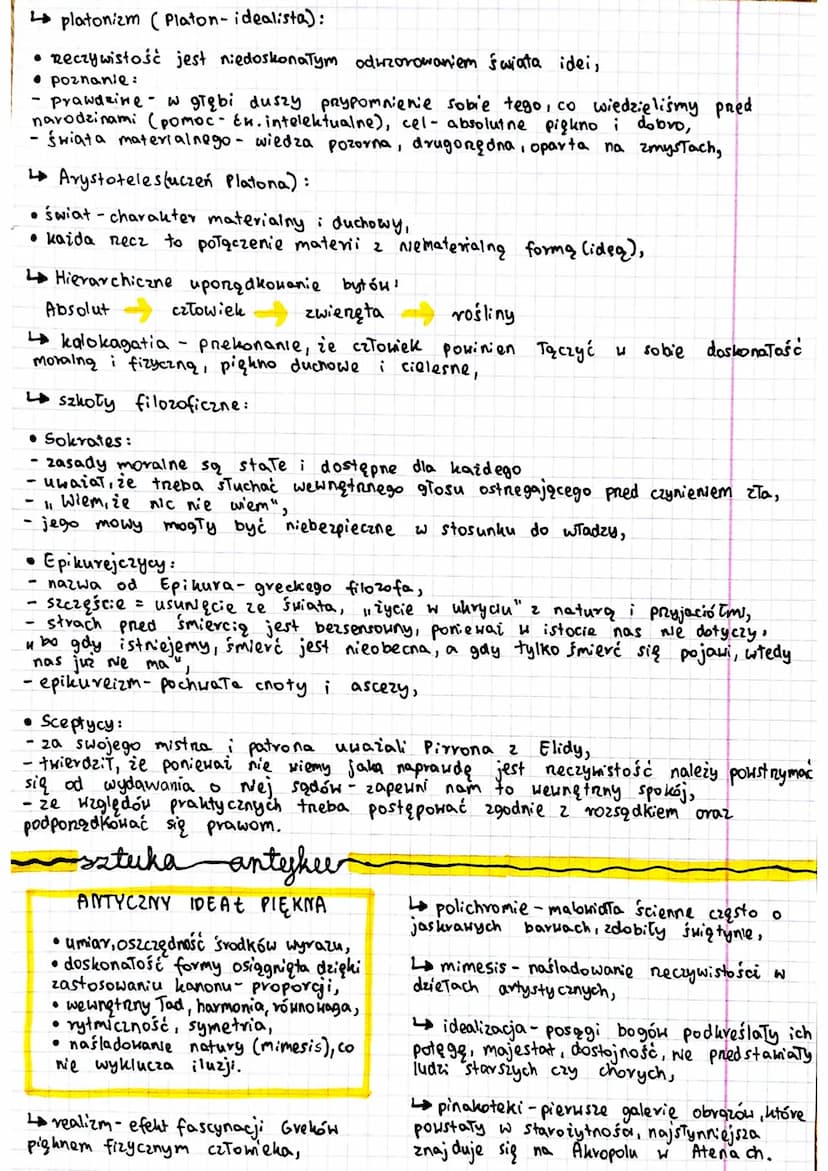 ↳ platonizm (Platon - idealista):
• rzeczywistość jest niedoskonałym odwzorowaniem świata idei,
• poznanie:
- prawdziwe - w głębi duszy przypomnienie sobie tego, co wiedzieliśmy przed
narodzinami (pomoc - ćw. intelektualne), cel - absolutne piękno i dobro,
- świata materialnego - wiedza pozorna, drugorzędna, oparta na zmysłach,
↳ Arystoteles (uczeń Platona):
• świat - charakter materialny i duchowy,
• każda rzecz to połączenie materii z niematerialną formą (ideą),
↳ Hierarchiczne uporządkowanie bytów:
Absolut → człowiek → zwierzęta → rośliny
↳ kalokagatia - przekonanie, że człowiek powinien łączyć w sobie doskonałość
moralną i fizyczną, piękno duchowe i cielesne,
↳ szkoły filozoficzne:
• Sokrates:
- zasady moralne są stałe i dostępne dla każdego
- uważał, że trzeba słuchać wewnętrznego głosu ostrzegającego przed czynieniem zła,
- „Wiem, że nic nie wiem",
- jego mowy mogły być niebezpieczne w stosunku do władzy,
• Epikurejczycy:
- nazwa od Epikura - greckego filozofa,
- szczęście = usunięcie ze świata, „życie w ukryciu" z naturą i przyjaciółmi,
- strach przed śmiercią jest bezsensowny, ponieważ w istocie nas nie dotyczy.
„bo gdy istniejemy, śmierć jest nieobecna, a gdy tylko śmierć się pojawi, wtedy
nas już nie ma",
- epikureizm - pochwała cnoty i ascezy,
• Sceptycy:
- za swojego mistrza i patrona uważali Pirrona z Elidy,
- twierdził, że ponieważ nie wiemy jaka naprawdę jest rzeczywistość należy powstrzymać
się od wydawania o niej sądów - zapewni nam to wewnętrzny spokój,
- ze względów praktycznych trzeba postępować zgodnie z rozsądkiem oraz
podporządkować się prawom.
sztuka antyku
ANTYCZNY IDEAŁ PIĘKNA
• umiar, oszczędność środków wyrazu,
• doskonałość formy osiągnięta dzięki
zastosowaniu kanonu - proporcji,
• wewnętrzny ład, harmonia, równowaga,
• rytmiczność, symetria,
• naśladowanie natury (mimesis), co
nie wyklucza iluzji.
↳ realizm - efekt fascynacji Greków
pięknem fizycznym człowieka,
↳ polichromie - malowidła ścienne często o
jaskrawych barwach, zdobiły świątynie,
↳ mimesis - naśladowanie rzeczywistości w
dziełach artystycznych,
↳ idealizacja - posągi bogów podkreślały ich
potęgę, majestat, dostojność, nie przedstawiały
ludzi starszych czy chorych,
↳ pinakoteki - pierwsze galerie obrazów, które
powstały w starożytności, najsłynniejsza
znajduje się na Akropolu w Atenach.